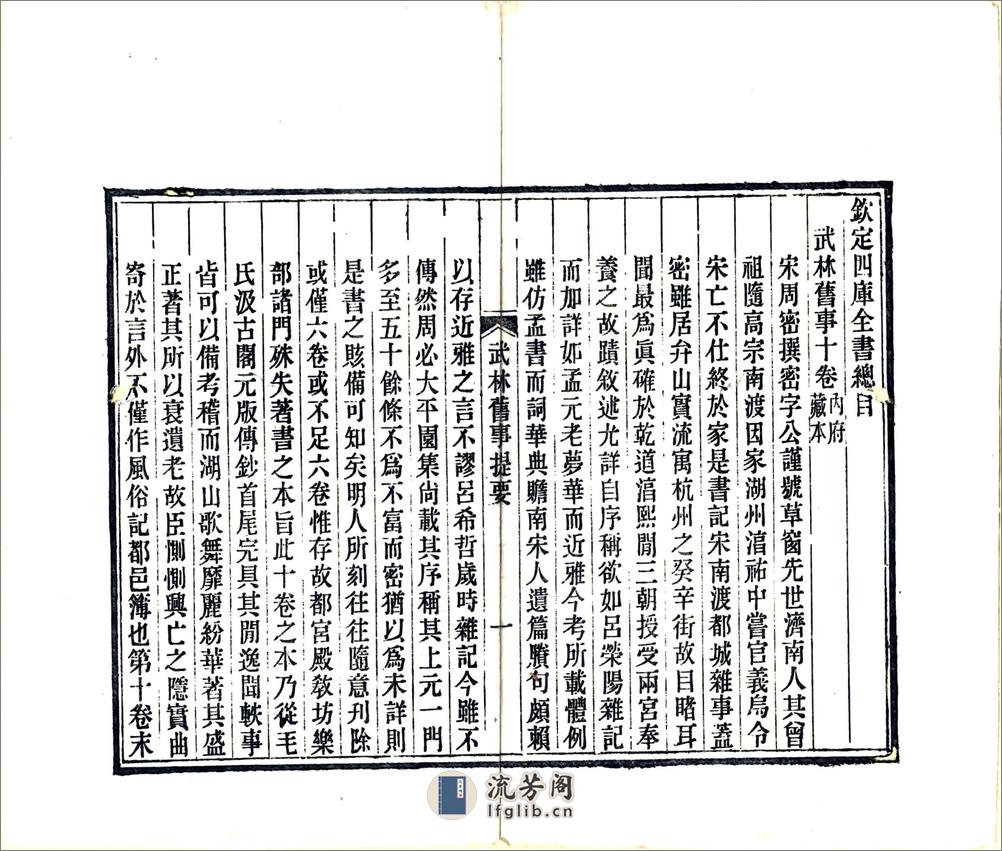 欽定四庫全書總目
武林舊事十卷內府藏本
宋周密撰密字公謹號草窗先世濟南人其曾
祖隨高宗南渡因家湖州淯祐中嘗官義烏令
宋亡不仕終於家是書記宋南渡都城雜事蓋
密雖居弁山實流寓杭州之癸辛街故目睹耳
聞最爲眞確於乾道淯熙閒三朝授受兩宮奉
養之故蹟敘述尤詳自序稱欲如呂榮陽雜記
而加詳如孟元老夢華而近雅今考所載體例
雖仿孟書而詞華典贍南宋人遺篇賸句頗賴
武林舊事提要
一
以存近雅之言不謬呂希哲歲時雜記今雖不
傳然周必大平園集尙載其序稱其上元一門
多至五十餘條不爲不富而密猶以爲未詳則
是書之賅備可知矣明人所刻往往隨意刊除
或僅六卷或不足六卷惟存故都宮殿敎坊樂
部諸門殊失著書之本旨此十卷之本乃從毛
氏汲古閣元版傳鈔首尾完具其閒逸聞軼事
皆可以備考稽而湖山歌舞靡麗紛華著其盛
正著其所以衰遺老故臣惻惻興亡之隱實曲
寄於言外不僅作風俗記都邑簿也第十卷末
流芳阁
lfglib.cn